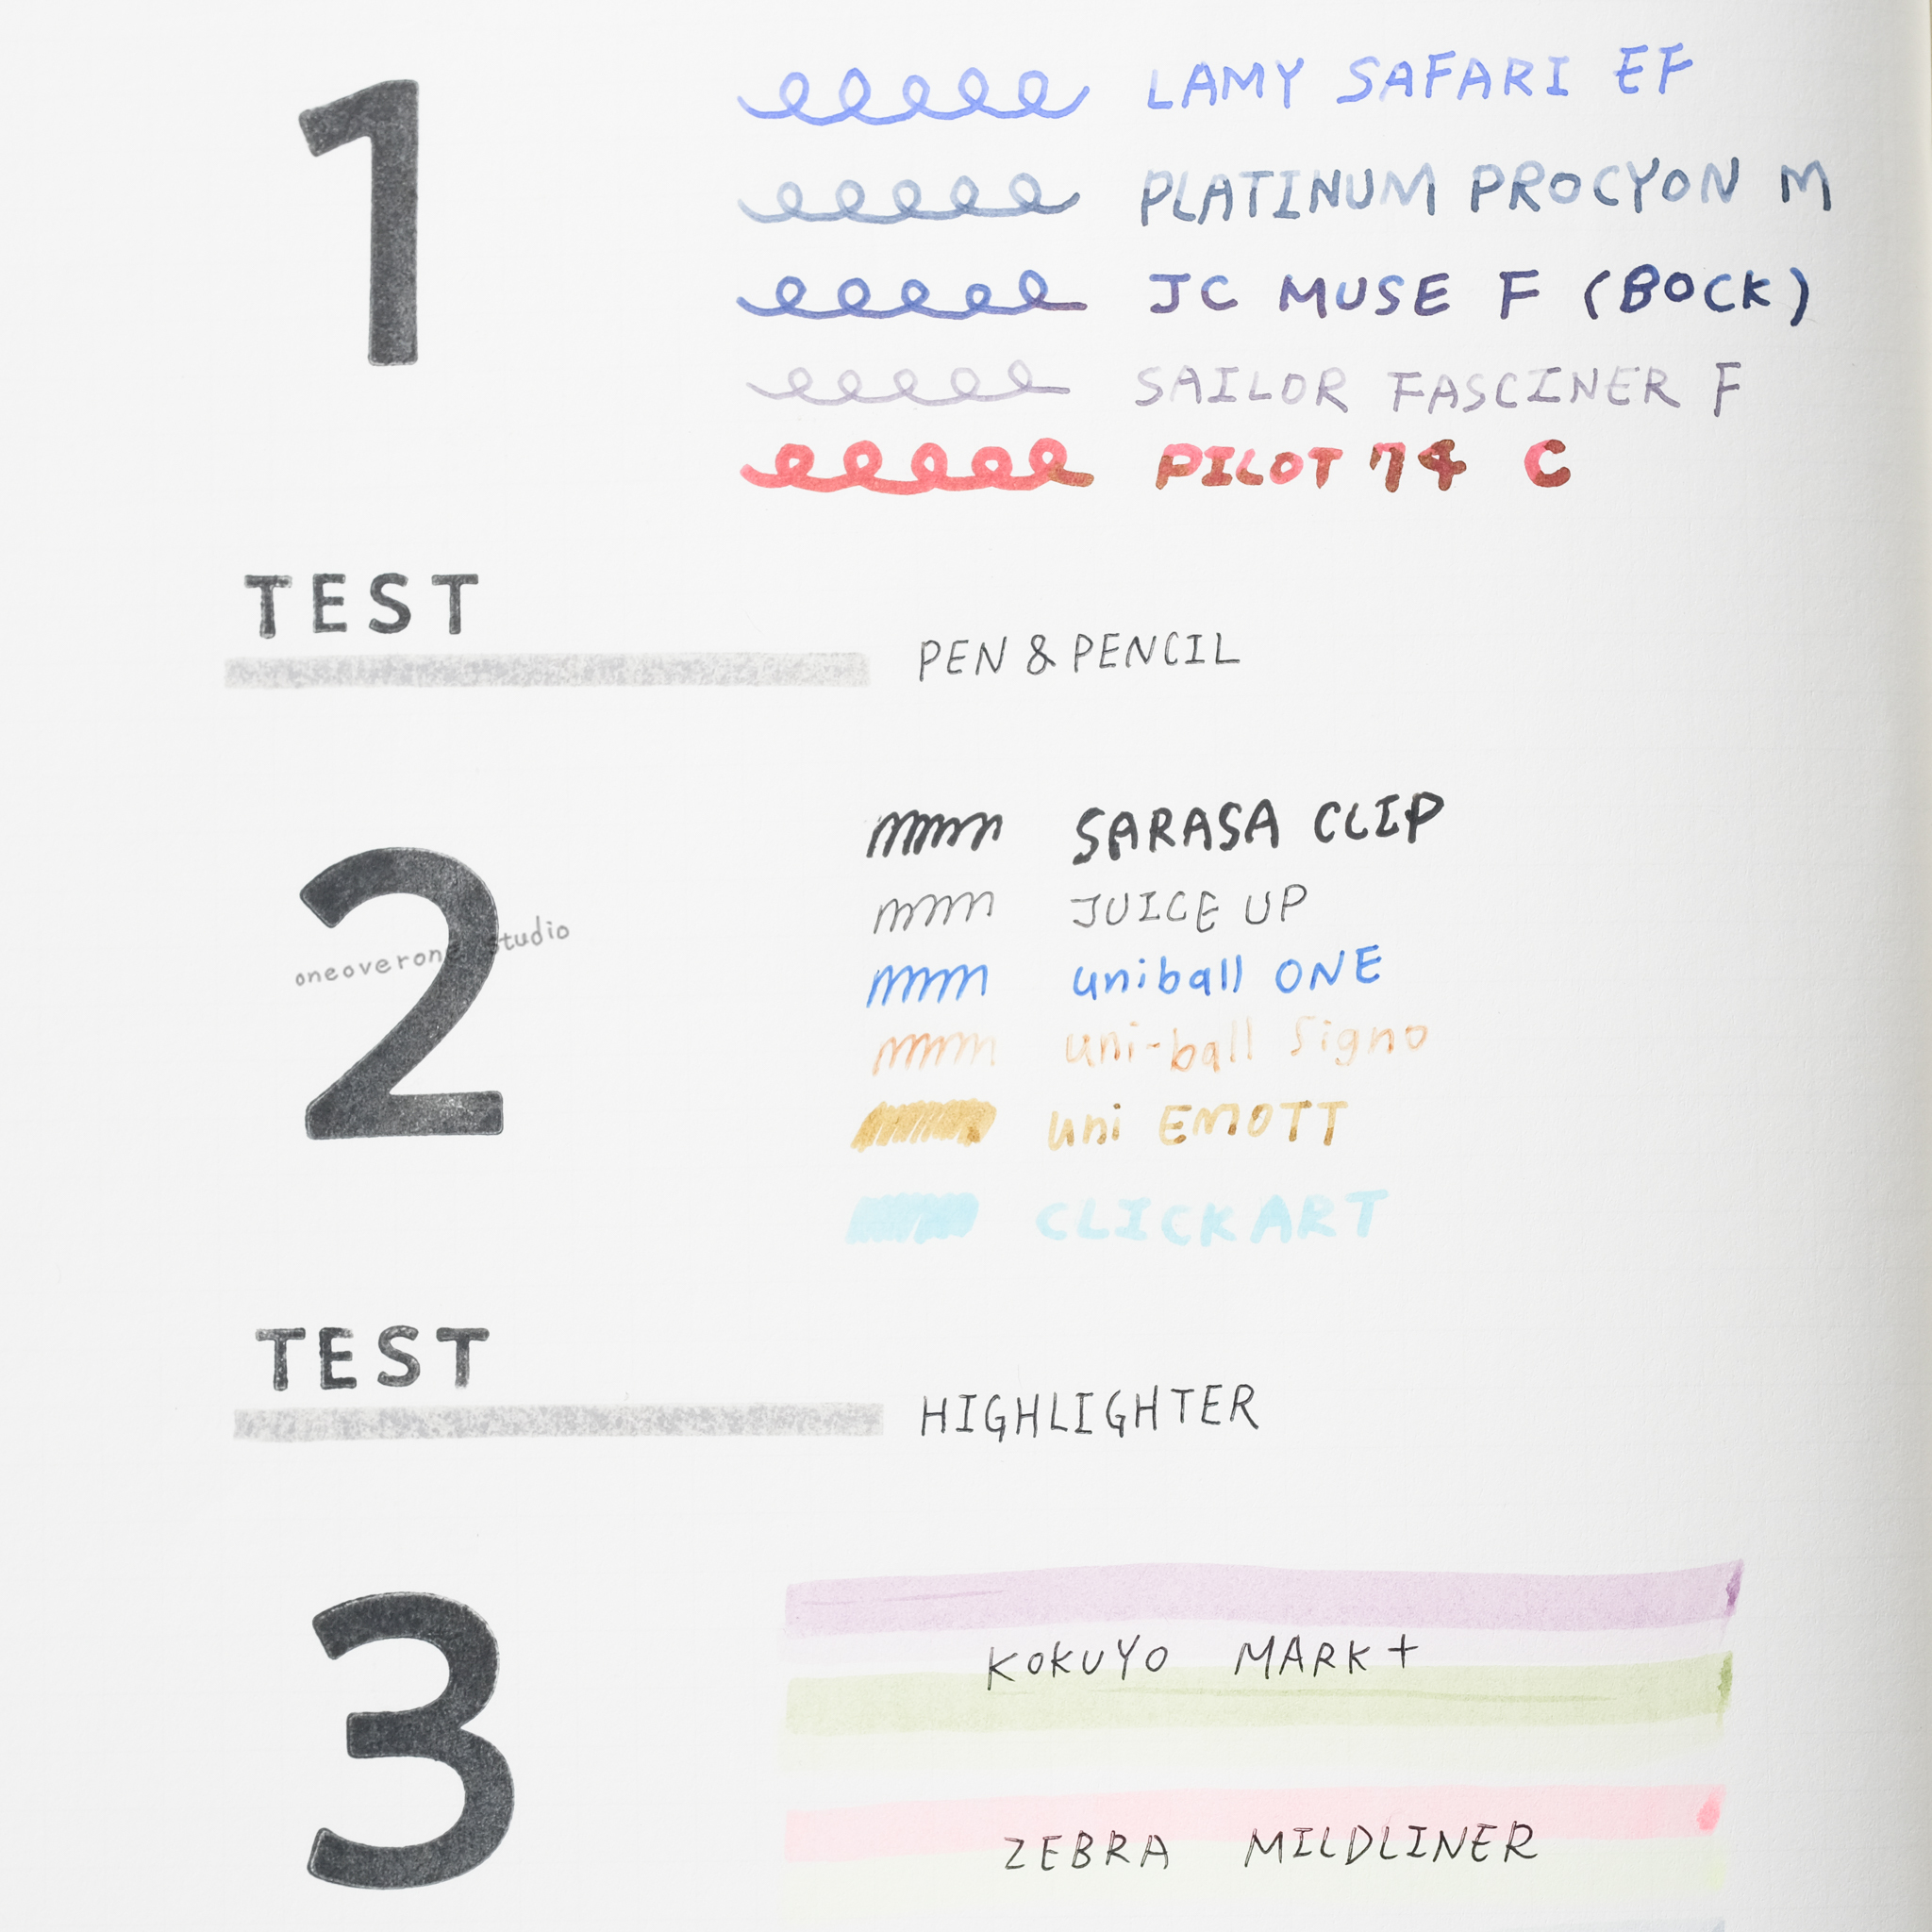 1
LAMY SAFARI EF
PLATINUM PROCYON M
JC MUSE F (BOCK)
SAILOR FASCINER F
PILOT 74 C
TEST
PEN & PENCIL
2
SARASA CLIP
JUICE UP
uniball ONE
uni-ball Signo
uni EMOTT
CLICKART
oneoverone studio
TEST
HIGHLIGHTER
3
KOKUYO MARK+
ZEBRA MILDLINER